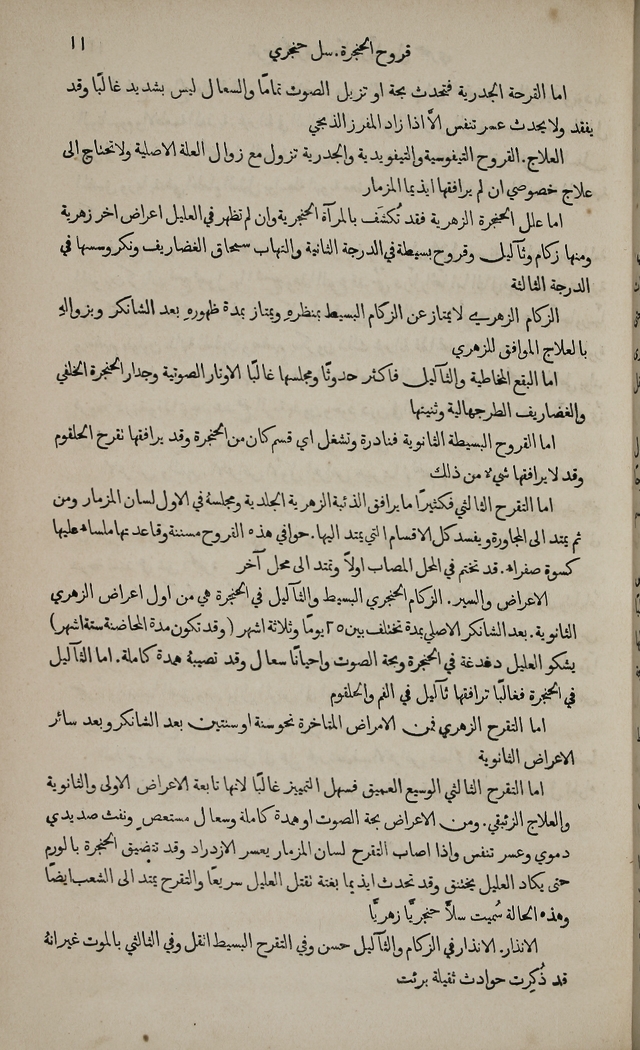 قروح الحنجرة. سل حنجري ١١
اما القرحة الجدرية فتحدث بحة او تزيل الصوت تمامًا والسعال ليس بشديد غالبًا وقد
يفقد ولا يحدث عسر تنفس الاَّ اذا زاد المفرز الذبحي
العلاج. القروح التيفوسية والتيفويدية والجدرية تزول مع زوال العلة الاصلية ولا تحتاج الى
علاج خصوصي ان لم يرافقها ايذيما المزمار
اما علل الحنجرة الزهرية فقد تُكشَف بالمرآة الحنجرية وان لم تظهر في العليل اعراض اخر زهرية
ومنها زكام وثآليل وقروح بسيطة في الدرجة الثانية والتهاب سمحاق الغضاريف ونكروسسها في
الدرجة الثالثة
الزكام الزهري لا يمتاز عن الزكام البسيط بمنظرهِ ويمتاز بمدة ظهورهِ بعد الشانكر وبزوالهِ
بالعلاج الموافق للزهري
اما البقع المخاطية والثآليل فاكثر حدوثًا ومجلسها غالبًا الاوتار الصوتية وجدار الحنجرة الخلفي
والغضاريف الطرجهالية وثنيتها
اما القروح البسيطة الثانوية فنادرة وتشغل اي قسم كان من الحنجرة وقد يرافقها تقرح الحلقوم
وقد لا يرافقها شيءٌ من ذلك
اما التقرح الثالثي فكثيرًا ما يرافق الذئبة الزهرية الجلدية ومجلسهُ في الاول لسان المزمار ومن
ثم يمتد الى المجاورة ويفسد كل الاقسام التي يمتد اليها. حوافي هذه القروح مسننة وقاعدتها ملساء عليها
كسوة صفراء. قد تختم في المحل المصاب اولاً وتمتد الى محل آخر
الاعراض والسير. الزكام الحنجري البسيط والثآليل في الحنجرة هي من اول اعراض الزهري
الثانوية. بعد الشانكر الاصلي بمدة تختلف بين ٢٥ يومًا وثلاثة اشهر (وقد تكون مدة المحاضنة ستة اشهر)
يشكو العليل دغدغة في الحنجرة وبحة الصوت واحيانًا سعال وقد تصيبهُ همدة كاملة. اما الثآليل
في الحنجرة فغالبًا ترافقها ثآليل في الفم والحلقوم
اما التقرح الزهري فمن الامراض المتاخرة نحو سنة او سنتين بعد الشانكر وبعد سائر
الاعراض الثانوية
اما التقرح الثالثي الوسيع العميق فسهل التمييز غالبًا لانها تابعة الاعراض الاولى والثانوية
والعلاج الزئبقي. ومن الاعراض بحة الصوت او همدة كاملة وسعال مستعص ونفث صديدي
دموي وعسر تنفس واذا اصاب التقرح لسان المزمار يعسر الازدراد وقد تتضيق الحنجرة بالورم
حتى يكاد العليل يختنق وقد تحدث ايذيما بغتة تقتل العليل سريعًا والتقرح يمتد الى الشعب ايضًا
وهذه الحالة سُميت سلاًّ حنجريًّا زهريًّا
الانذار. الانذار في الزكام والثآليل حسن وفي التقرح البسيط اثقل وفي الثالثي بالموت غير انهُ
قد ذُكِرت حوادث ثقيلة برئت